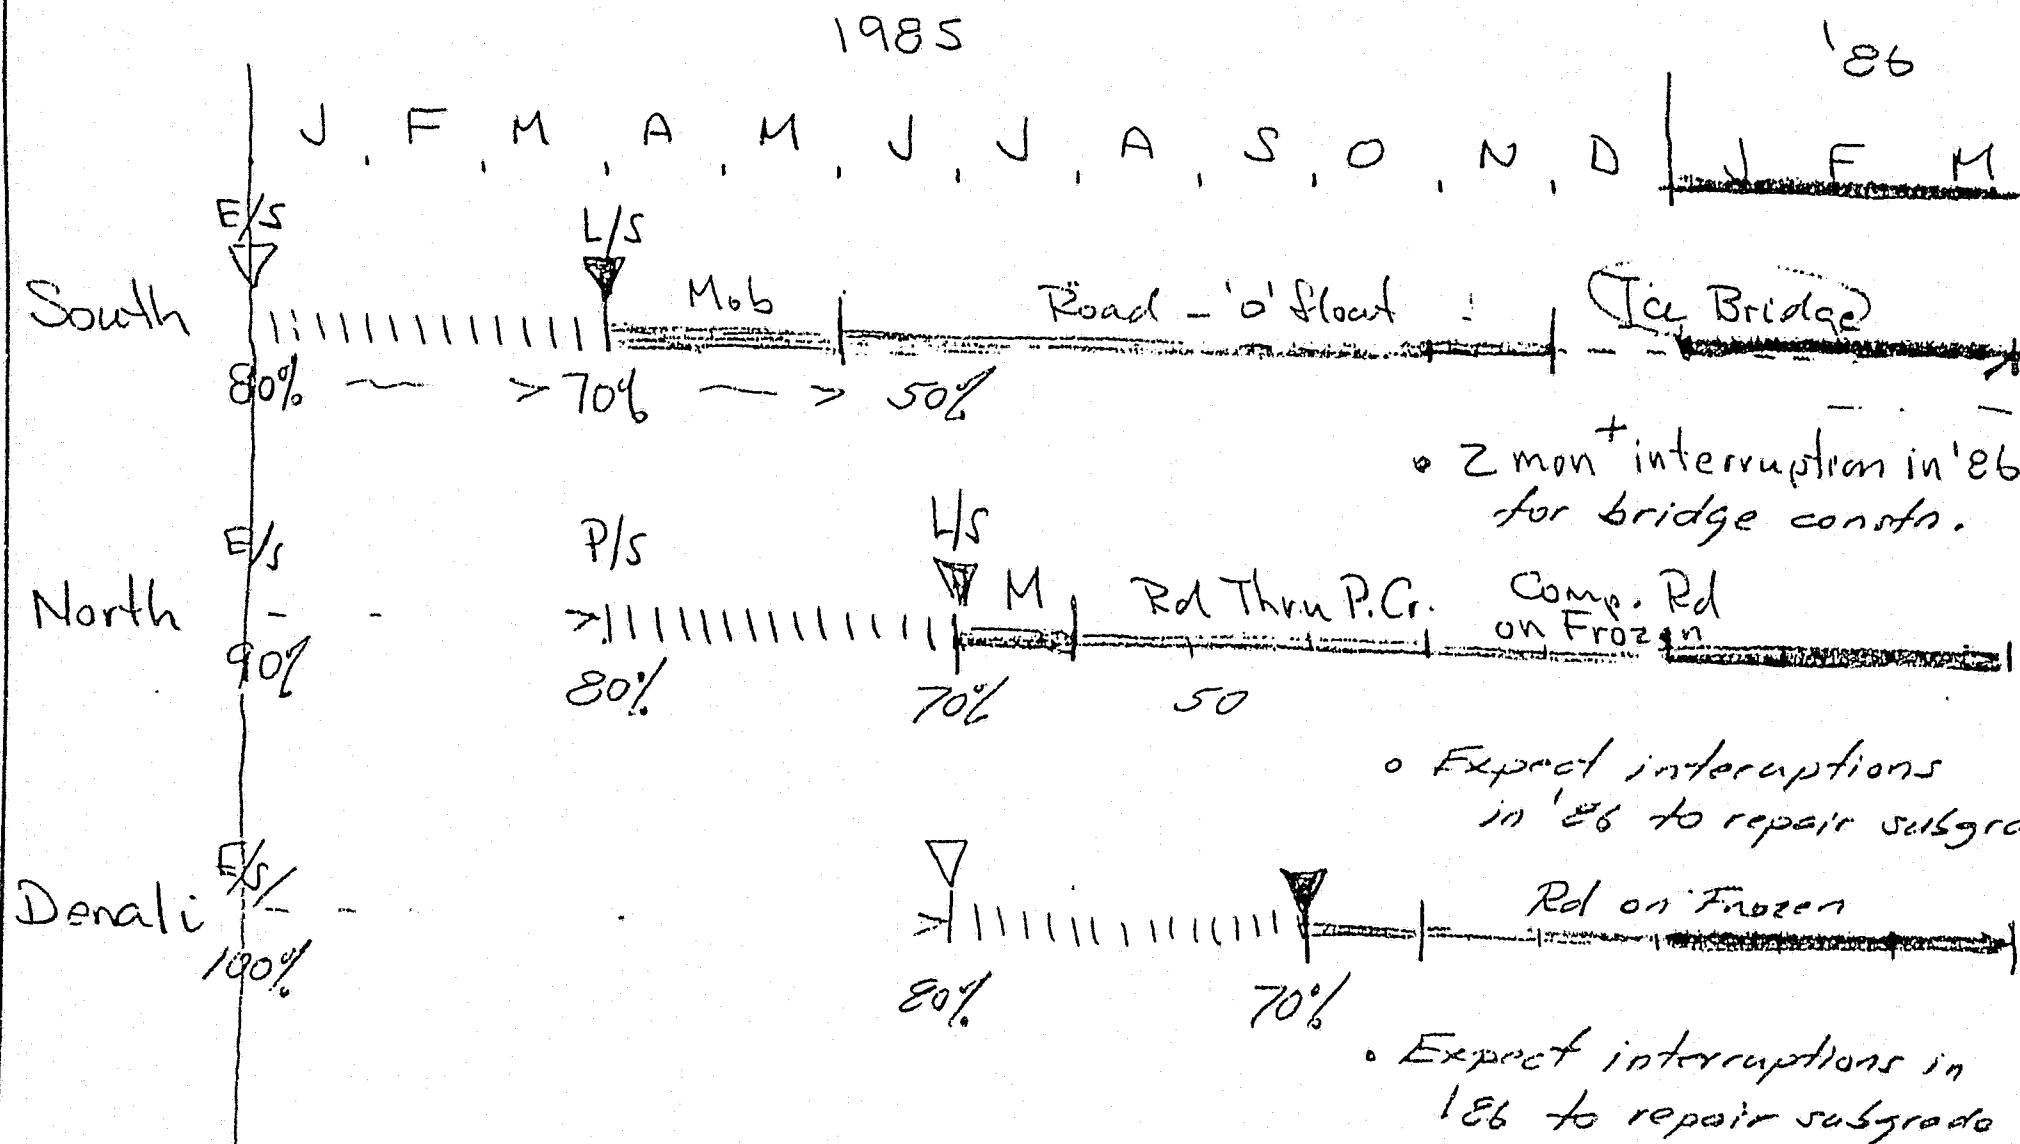 1985 '86
J F M A M J J A S O N D J F M
E/S L/S
South Mob Road - 'o' float Ice Bridge
80% > 70% > 50%
• 2 mon+ interruption in '86
for bridge constn.
E/S P/S L/S
North M Rd Thru P.Cr. Comp. Rd
on Frozen
90% 80% 70% 50
• Expect interuptions
in '86 to repair subgra
E/S
Denali Rd on Frozen
100% 80% 70%
• Expect interruptions in
'86 to repair subgrade